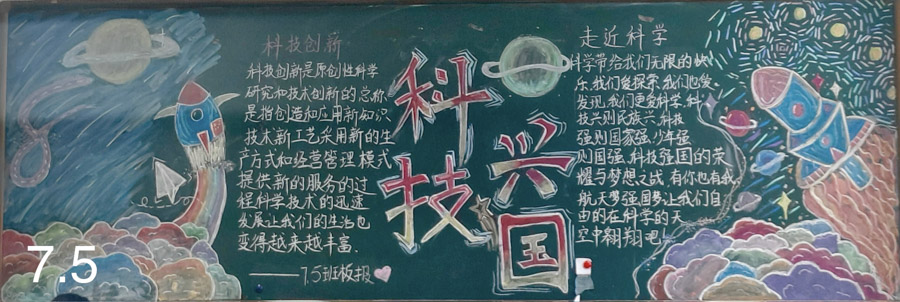 科技创新
科技创新是原创性科学
研究和技术创新的总称
是指创造和应用新知识
技术新工艺采用新的生
产方式和经营管理模式
提供新的服务的过
程科学技术的迅速
发展让我们的生活也
变得越来越丰富.
——7.5班板报
科技
兴国
走近科学
科学带给我们无限的快
乐.我们爱探索.我们也爱
发现.我们更爱科学.科
技兴则民族兴.科技
强则国家强.少年强
则国强.科技强国的荣
耀与梦想之战.有你也有我
航天梦强国梦让我们自
由的在科学的天
空中翱翔吧!
7.5